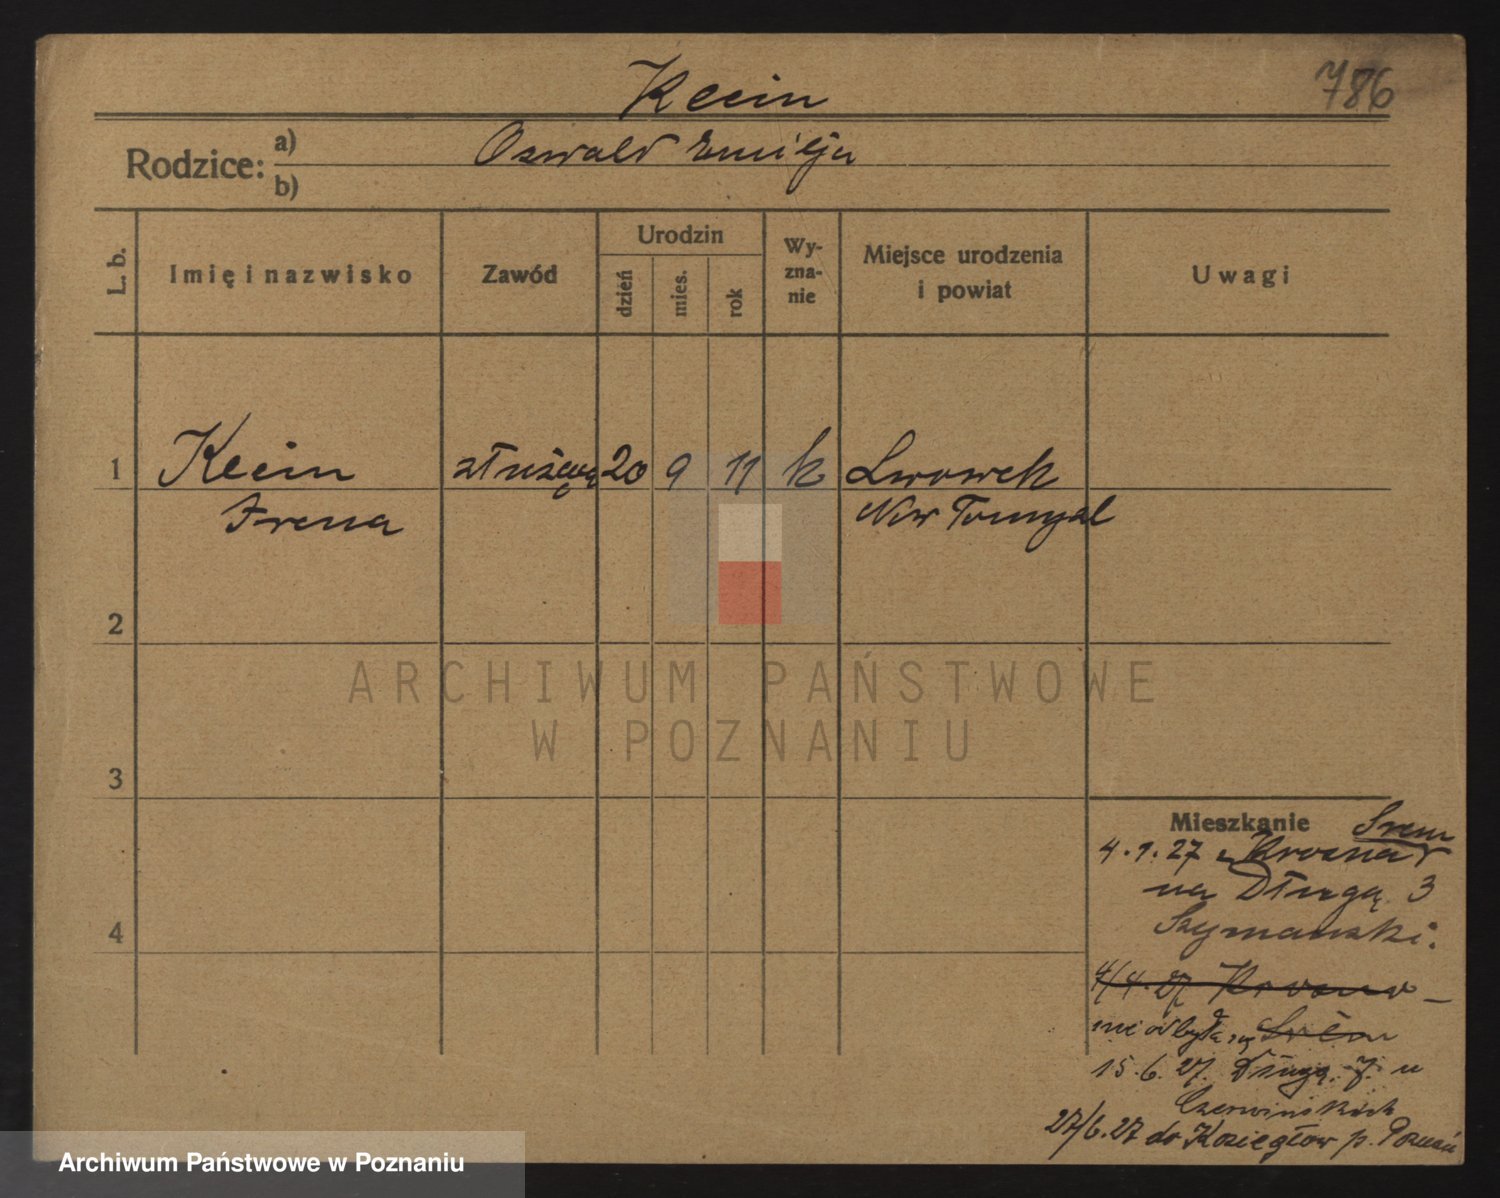 786
Klein
Rodzice: a) Oswald Emilja
b)
L. b.
Imię i nazwisko
Zawód
Urodzin
dzień
mies.
rok
Wy-
zna-
nie
Miejsce urodzenia
i powiat
Uwagi
1 Klein służąca 20 9 11 k Lwowek
Irena Now Tomysl
2
3
4
Mieszkanie Srem
4.1.27 z Krosna
na Długą 3
Szymanski.
4/4.27 Krosno —
nie odbyła się Srem
15.6.27. Długa 7 u
Czerwińskich
27/6.27 do Koziegłow p. Poznań
ARCHIWUM PAŃSTWOWE
W POZNANIU
Archiwum Państwowe w Poznaniu